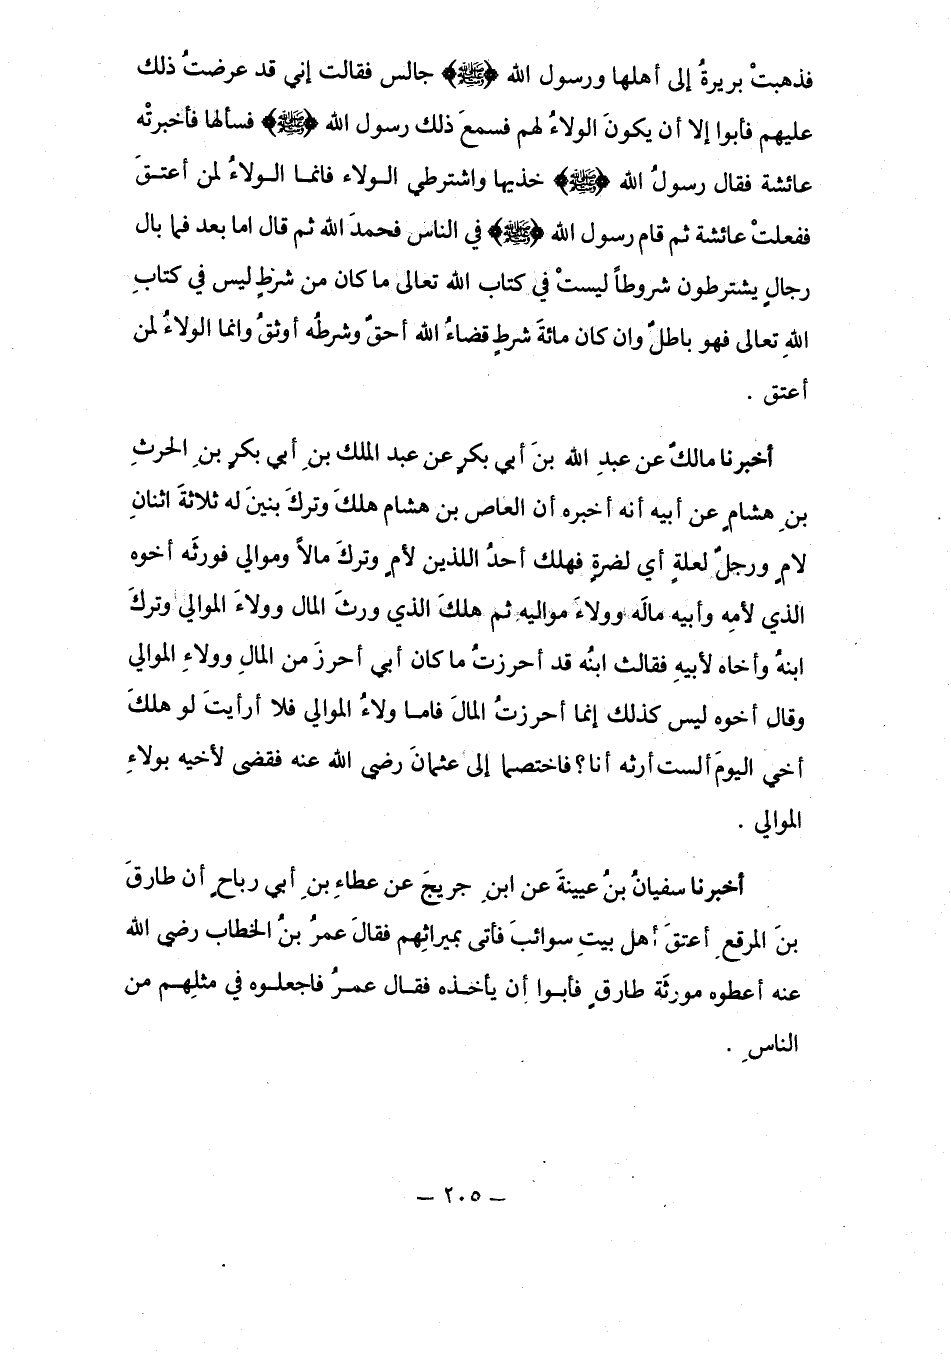 فذهبتْ بريرةُ إلى أهلها ورسول الله ﴿ﷺ﴾ جالس فقالت إني قد عرضتُ ذلك
عليهم فأبوا إلا أن يكونَ الولاءُ لهم فسمعَ ذلك رسول الله ﴿ﷺ﴾ فسألها فأخبرتْه
عائشة فقال رسولُ الله ﴿ﷺ﴾ خذيها واشترطي الـولاء فانمـا الـولاءُ لمن أعتـقَ
ففعلتْ عائشة ثم قام رسول الله ﴿ﷺ﴾ في الناس فحمدَ الله ثم قال اما بعد فما بال
رجالٍ يشترطون شروطاً ليستْ في كتاب الله تعالى ما كان من شرْطٍ ليس في كتابِ
اللهِ تعالى فهو باطلٌ وان كان مائةَ شرطٍ قضاءُ الله أحقٌ وشرطُه أوثقُ وانما الولاءُ لمن
أعتق .
أخبرنا مالكٌ عن عبدِ الله بنَ أبي بكرٍ عن عبد الملك بنِ أبي بكرٍ بنِ الحرثِ
بنِ هشامٍ عن أبيه أنه أخبره أن العاص بن هشام هلكَ وتركَ بنينَ له ثلاثةَ اثنانِ
لامٍ ورجلٌ لعلةٍ أي لضرةٍ فهلك أحدُ اللذين لأمٍ وتركَ مالاً وموالي فورثَه أخوه
الذي لأمِه وأبيه مالَه وولاءَ مواليهِ ثم هلكَ الذي ورثَ المال وولاءَ الموالي وتركَ
ابنهُ وأخاه لأبيهِ فقالتْ ابنُه قد أحرزتُ ما كان أبي أحرزَ من المالِ وولاءِ الموالي
وقال أخوه ليس كذلك إنما أحرزتُ المالَ فامـا ولاءُ الموالي فلا أرأيتَ لو هلكَ
أخي اليومَ ألست أرثه أنا؟ فاختصما إلى عثمانَ رضي الله عنه فقضى لأخيه بولاءِ
الموالي .
أخبرنا سفيانُ بنُ عيينةَ عن ابنِ جريجَ عن عطاءِ بنِ أبي رباحٍ أن طارقَ
بنَ المرقعِ أعتقَ أهل بيتِ سوائبَ فأتى بميراثِهم فقالَ عمرُ بنُ الخطاب رضي الله
عنه أعطوه مورثَة طارقٍ فأبـوا أن يأخـذه فقـال عمـرُ فاجعلـوه في مثلِهـم من
الناسِ .
– ٢٠٥ –